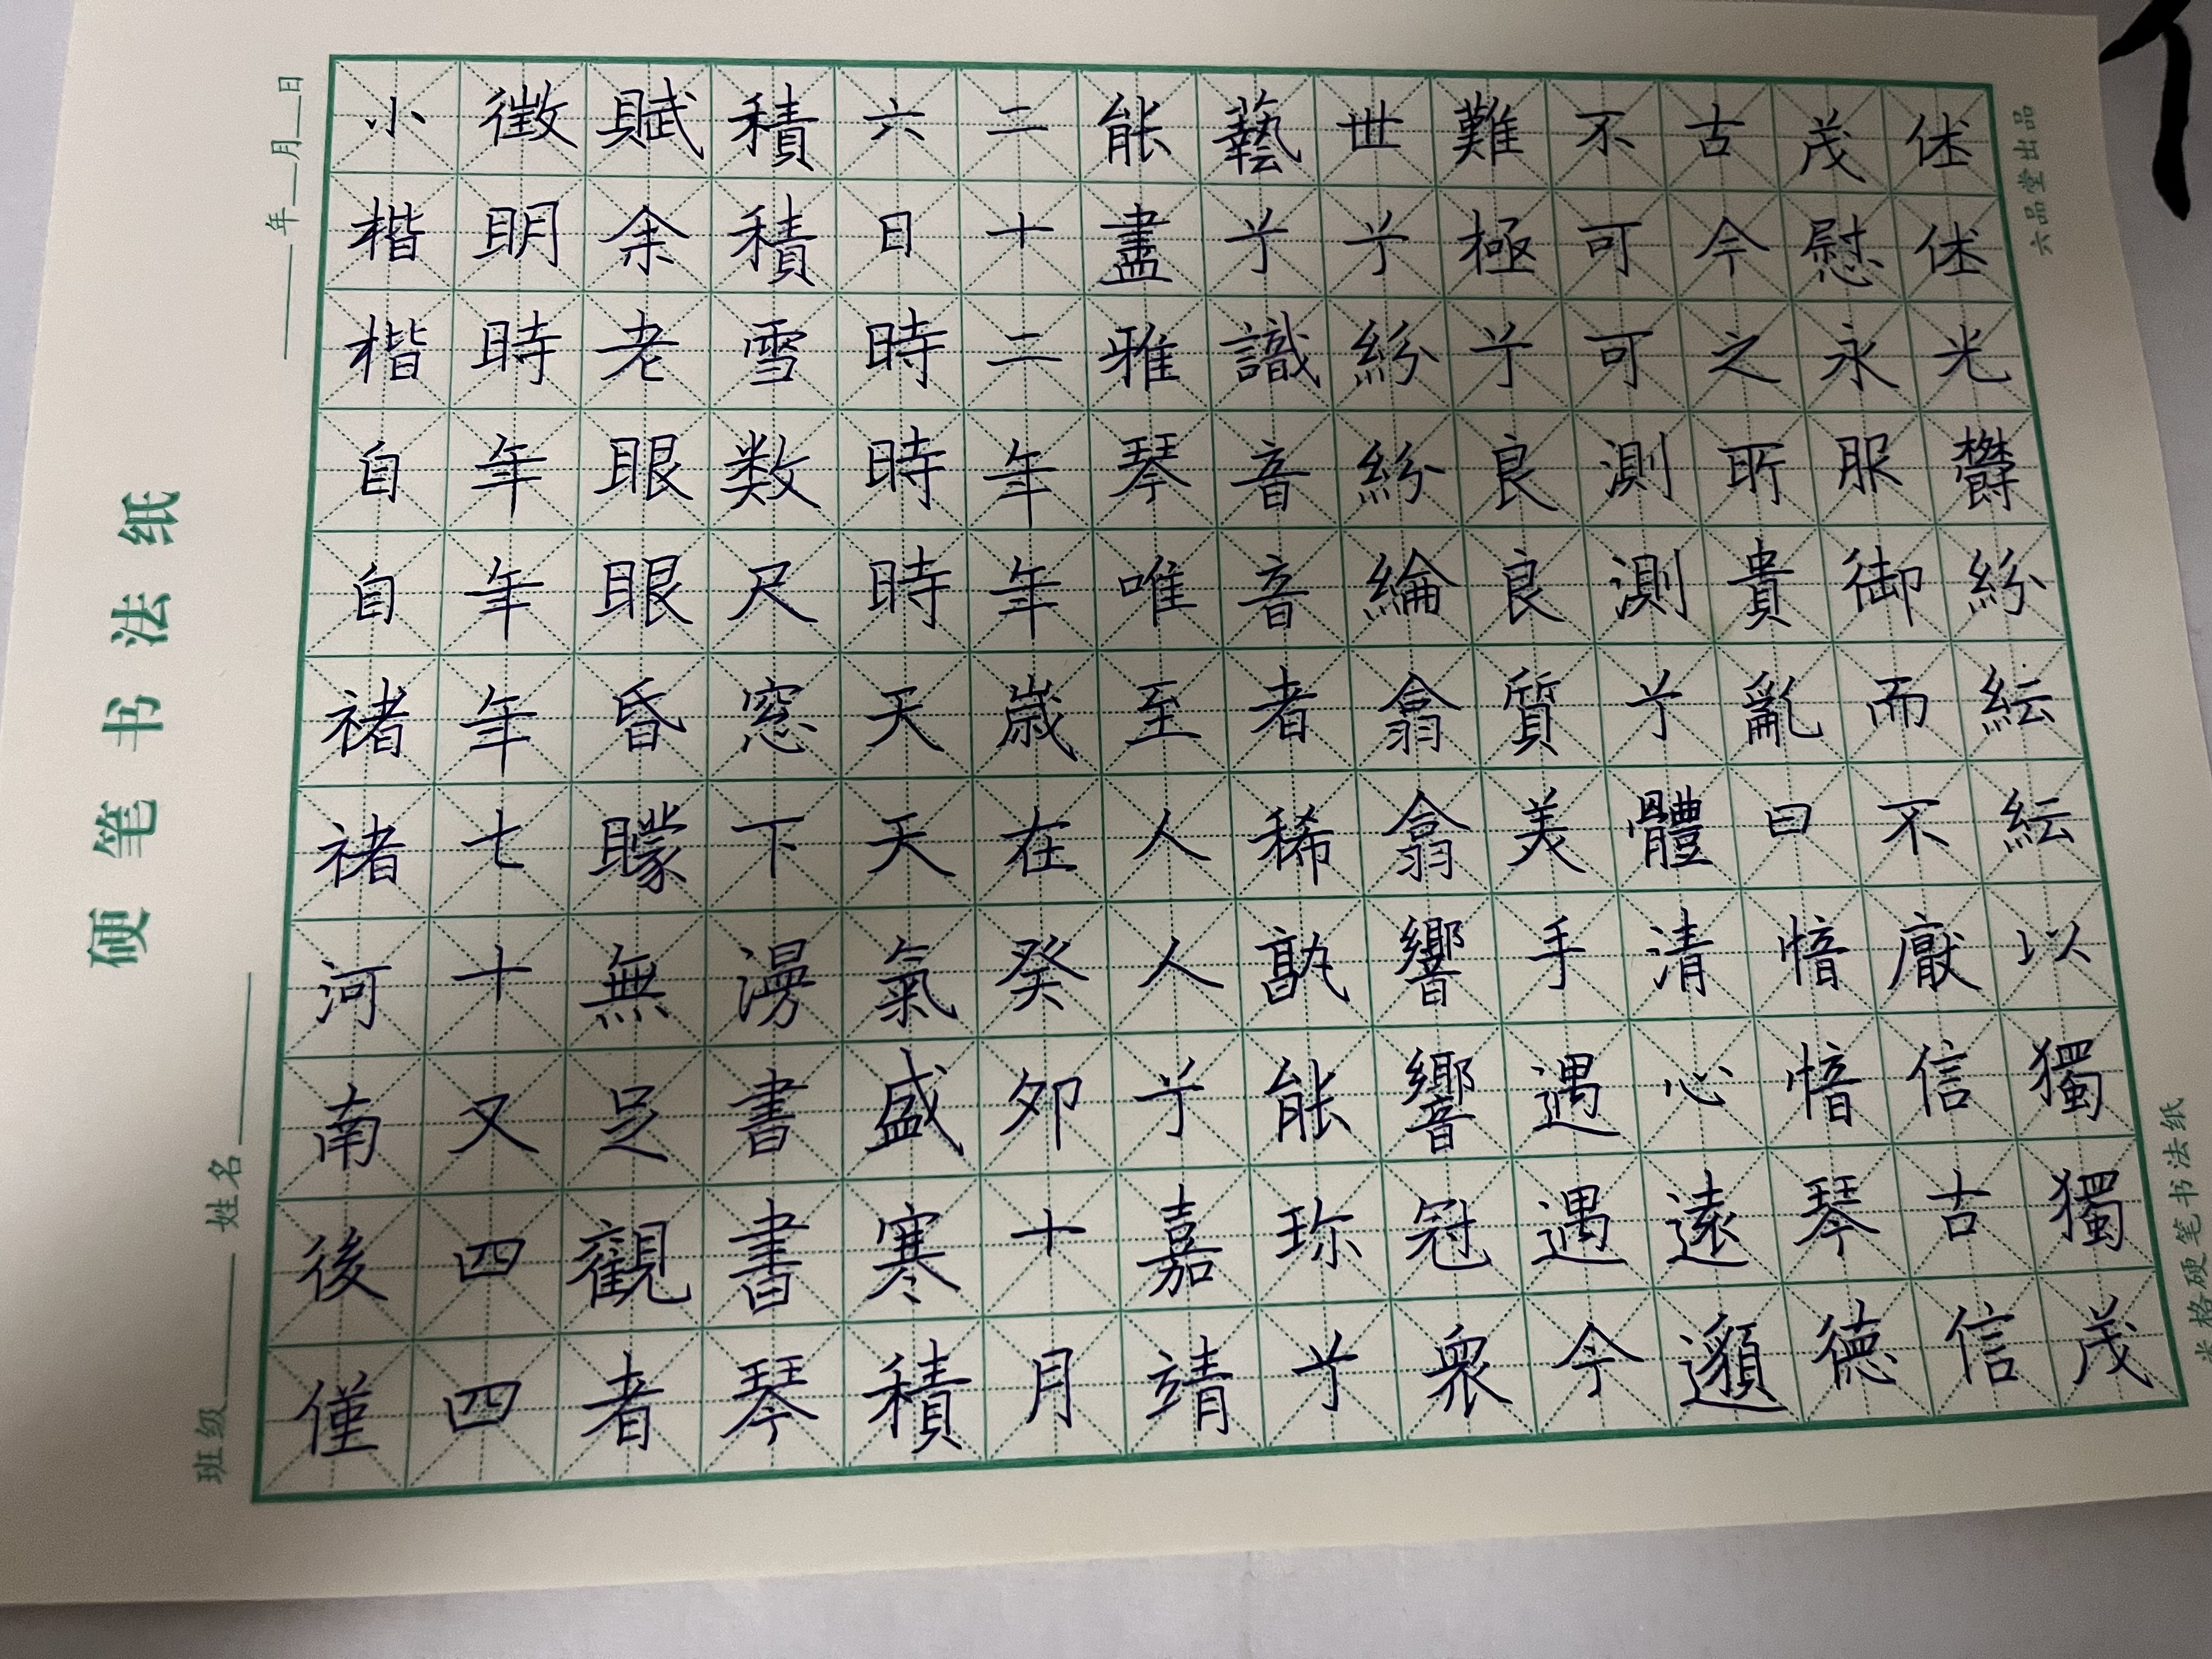 佳佳光爵紛紜紜以獨獨茂
茂慰永服御而不厭信古信
古今之所貴亂曰愔愔琴德
不可可測測兮體清心遠邈
難極兮良良質美手遇遇今
世兮紛紛綸翕翕響響冠衆
藝兮識音音者希孰能珍兮
能盡雅琴唯至人人兮嘉靖
二十二年年歲在癸卯十月
六日時時時天天氣盛寒積
積積雪數尺窓下書書琴
賦余老眼眼昏朦無足觀者
徵明時年年年七十又四四
小楷楷自自褚褚河南後僅
硬笔书法纸
班级 姓名
年 月 日
六品堂出品
米格硬笔书法纸